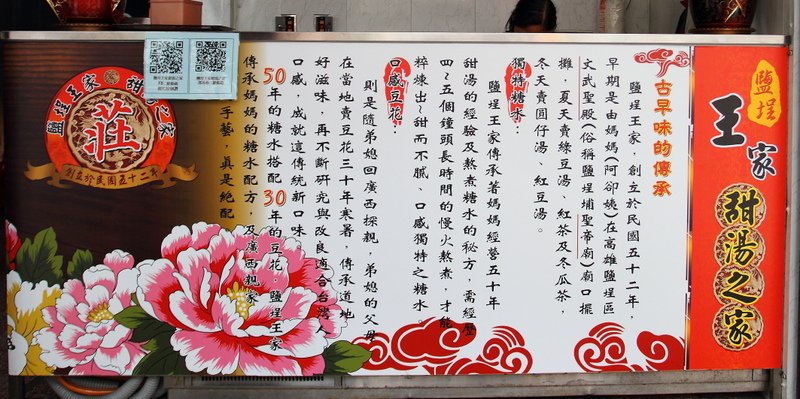 鹽埕
王家
甜湯之家
古早味的傳承
鹽埕王家，創立於民國五十二年，
早期是由媽媽(阿卻姨)在高雄鹽埕區
文武聖殿(俗稱鹽埕埔聖帝廟)廟口擺
攤，夏天賣綠豆湯、紅茶及冬瓜茶，
冬天賣圓仔湯、紅豆湯。
獨特糖水：
鹽埕王家傳承著媽媽經營五十年
甜湯的經驗及熬煮糖水的秘方，需經歷
四~五個鐘頭長時間的慢火熬煮，才能
粹煉出~甜而不膩、口感獨特之糖水
口感豆花：
則是隨弟媳回廣西探親，弟媳的父母
在當地賣豆花三十年寒暑，傳承道地
好滋味，再不斷研究與改良適合台灣人
口感，成就這傳統新口味
50年的糖水搭配30年的豆花，鹽埕王家
傳承媽媽的糖水配方，及廣西親家
手藝，真是絕配
鹽埕王家 甜湯之家
莊
創立於民國五十二年